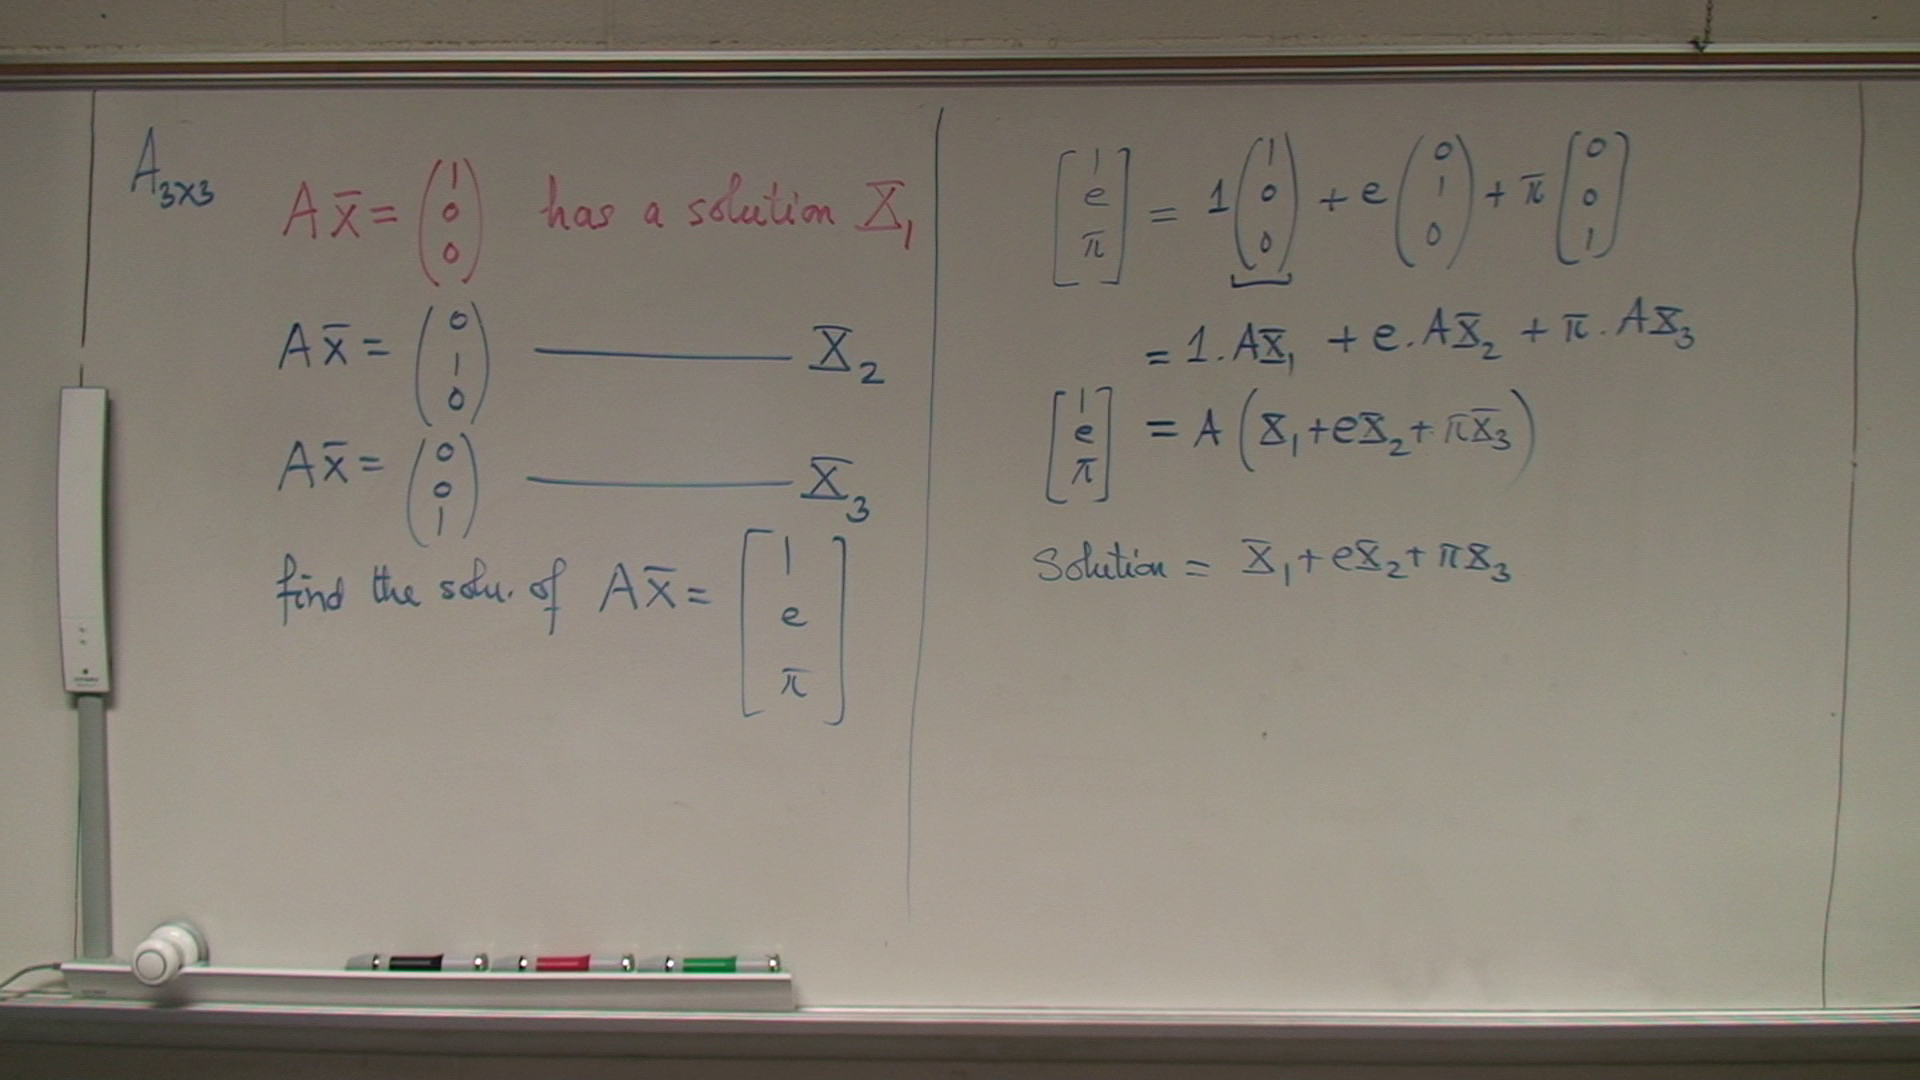 A₃ₓ₃
A x̄ = (1 0 0) has a solution X̄₁
A x̄ = (0 1 0) ——— X̄₂
A x̄ = (0 0 1) ——— X̄₃
find the solu. of A x̄ = [1 e π]
[1 e π] = 1 (1 0 0) + e (0 1 0) + π [0 0 1]
= 1. A X̄₁ + e. A X̄₂ + π. A X̄₃
[1 e π] = A (X̄₁ + e X̄₂ + π X̄₃)
Solution = X̄₁ + e X̄₂ + π X̄₃